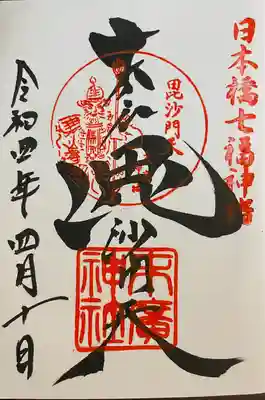 日本橋七福神詣
毘沙門天
末広
毘沙門天
末廣
神社
令和四年 四月十日